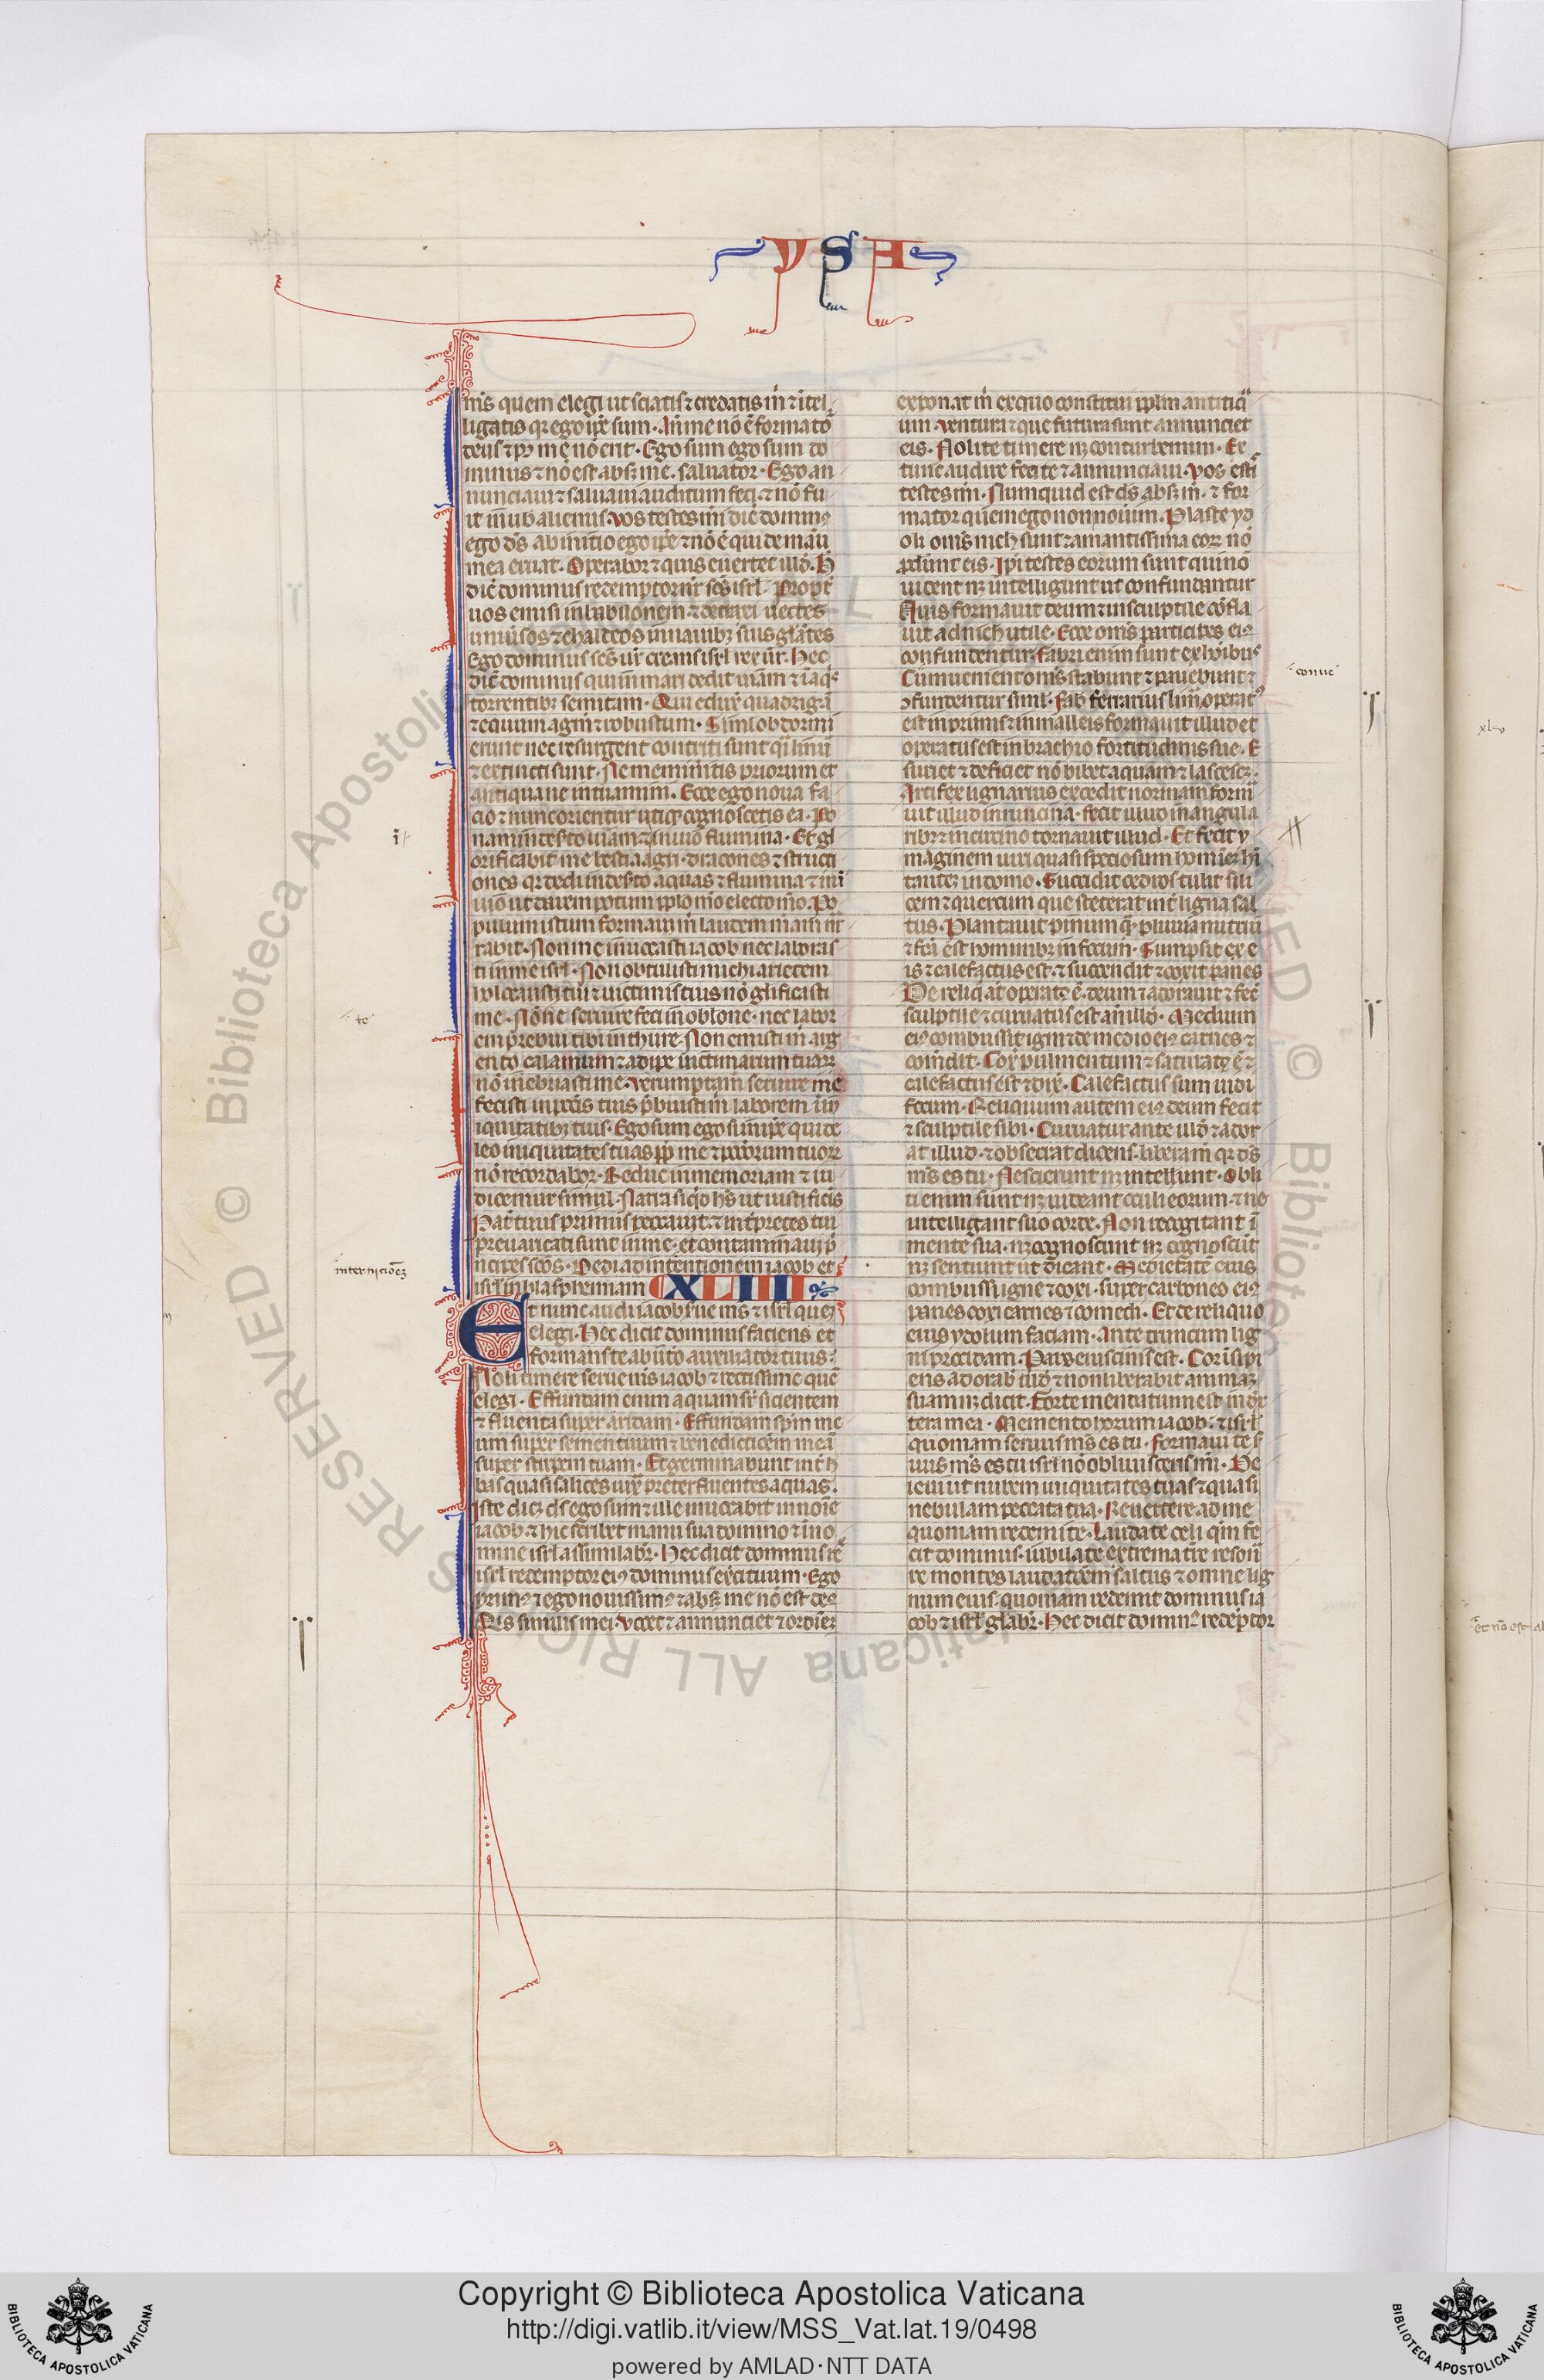 YSA
m̅s quem elegi ut sciatis ⁊ credatis m̅ ⁊ itel
ligatis qr ego ip̅e sum. An̅ me nō ē format᷒
deus ⁊ p᷒ me nō erit. Ego sum ego sum do
minus ⁊ nō est absq̨ me saluator. Ego an
nunciaui ⁊ saluaui auditum feci ⁊ nō fu
it in uob̅ alienus. Vos testes mi dic̅ domin᷒
ego ds̅ ab initio ego ip̅e ⁊ nō ē qui de manu
mea eruat. Operabor ⁊ quis euertet illd̅. H̅
dic̅ dominus redemptor ur̅ sc̅s isrl̅. Propt̅
uos emisi in babilonem ⁊ detraxi uectes
uniu̅sos ⁊ chaldeos in nauibꝫ suis gl̅antes
Ego dominus sc̅s ur̅ creans isrl̅ rex ur̅. Hec
dic̅ dominus qui in mari dedit uiam ⁊ i aq̅s
torrentibꝫ semitam. Qui eduxit quadrigā
⁊ equum agm̅ ⁊ robustum. Siml̅ obdormi
erunt nec resurgent contriti sunt q̅i linū
⁊ extincti sunt. Ne memin̅itis priorum et
antiqua ne intueamini. Ecce ego noua fa
cio ⁊ nunc orientur utiqꝫ cognoscetis ea. Po
nam in des̅to uiam ⁊ in inuio flumina. Et gl
orificabit me bestia agri. dracones ⁊ structi
ones qr dedi in des̅to aquas ⁊ flumina ⁊ ini
uio ut darem potum ip̅lo m̅o electo m̅o. Po
pulum istum formaui m̅ laudem meam nr̅
rabit. Non me inuocasti iacob nec laboras
ti in me isrl̅. Non obtulisti michi arietem
holocausti tui ⁊ uictimis tuis nō gl̅ificasti
me. Nō te seruire feci in oblōne. nec labor
em p̅bui tibi in thure. Non emisti m̅ arg
ento calamum ⁊ adipe uictimarum tuarꝝ
nō inebriasti me. Verumptam̅ seruire me
fecisti in pcc̅is tuis p̅buisti m̅ laborem in
iniquitatibꝫ tuis. Ego sum ego sum ip̅e qui de
leo iniquitates tuas pp̅ me ⁊ pccorum tuorꝝ
nō recordabor. Reduc in memoriam ⁊ iu
dicemur simul. Narra si q̅d hēs ut iustificeris
Pat̅ tuus primus peccauit ⁊ int̅pretes tui
preuaricati sunt in me. et contaminaui p̅
ncipes sc̅os. Dedi ad intentionem iacob et
isrl̅ in blasphemiam XLIIII
Et nunc audi iacob s̅ue m̅s ⁊ isrl̅ quem
elegi. Hec dicit dominus faciens et
formans te ab ut̅o auxiliator tuus.
Noli timere serue m̅s iacob ⁊ rectissime quē
elegi. Effundam enim aquam sr̅ sicientem
⁊ fluenta super aridam. Effundam sp̅m me
um super semen tuum ⁊ benedictōem meā
super stirpem tuam. Et germinabunt int̅ h̅
bas quasi salices iuxta preter fluentes aquas.
Iste dicꝫ ds̅ ego sum ⁊ ille inuocabit in nōie
iacob ⁊ hic scribet manu sua domino ⁊ i no
mine isrl̅ assimilabr̅. Hec dicit dominus re
isrl̅ redemptor ei᷒ dominus exercituum. Ego
prim᷒ ⁊ ego nouissim᷒ ⁊ absqꝫ me nō est de᷒
Qis similis mei. Vocet ⁊ annunciet ⁊ ordinē
exponat m̅ ex quo constitui pp̅lm antiqu
um. Ventura ⁊ que futura sunt annunciet
eis. Nolite timere nꝫ conturbemini. Ex
tunc audire feci te ⁊ annunciaui. Vos estis
testes mi. Numquid est ds̅ absqꝫ m̅ ⁊ for
mator quem ego non nouim. Plaste yd
oli om̅s nich̅ sunt ⁊ amantissima eorꝝ nō
ꝓdunt eis. Ip̅i testes eorum sunt qui nō
uident nꝫ intelligunt ut confundantur
Quis formauit deum ⁊ insculptile cōfla
uit ad nich̅ utile. Ecce om̅s participes ei᷒
confundentur. fabri enim sunt ex ho̅ibus
Cūuenient om̅s stabunt ⁊ pauebunt ⁊
ꝯfundentur simul. Fab̅ ferrarius lima operat᷒
est in prunis ⁊ in malleis formauit illud et
operatus est in brachio fortitudinis sue. E
suriet ⁊ deficiet nō bibet aquam ⁊ lascescꝫ.
Artifex lignarius extendit normam form
uit illud in runcina. fecit illud in angula
ribꝫ ⁊ in circino tornauit illud. Et fecit y
maginem uiri quasi speciosum hominē hi
tantē in domo. Succidit cedros tulit ili
cem ⁊ quercum que steterat int̅ ligna sal
tus. Plantauit pinum q̅m pluuia nutriu
⁊ fc̅a est hominibꝫ in focum. Sumpsit ex e
is ⁊ calefactus est. ⁊ succendit ⁊ coxit panes
De reliq̅ at̅ operat᷒ ē deum ⁊ adorauit ⁊ fec̅
sculptile ⁊ curuatus est an̅ illd̅. Medium
ei᷒ combussit igni ⁊ de medio ei᷒ carnes ⁊
comedit. Coxit pulmentum ⁊ saturat᷒ ē ⁊
calefactus est ⁊ dix̅. Calefactus sum uidi
focum. Reliquum autem ei᷒ deum fecit
⁊ sculptile sibi. Curuatur ante illd̅ ⁊ ador
at illud. ⁊ obsecrat dicens. libera m̅ qr ds̅
m̅s es tu. Nescierunt nꝫ intellx̅unt. Obli
ti enim sunt nꝫ uideant oculi eorum. ⁊ ne
intelligant suo corde. Non recogitant i
mente sua. nꝫ cognoscunt nꝫ cognoscūt
nꝫ sentiunt ut dicant. Medietatē eius
combussi igne ⁊ coxi. super carbones ei᷒
panes coxi carnes ⁊ comedi. Et de reliquo
eius ydolum faciam. Ante truncum lig
ni procidam. Pars eius cinis est. Cor insipi
ens adorab̅ illd̅ ⁊ non liberabit animā
suam nꝫ dicit. Forte mendatium est in dex
tera mea. Memento horum iacob. ⁊ isrl̅
quoniam seruus m̅s es tu. Formaui te s̅
uus m̅s es tu isrl̅ nō obliuisceris mi. De
leui ut nubem iniquitates tuas ⁊ quasi
nebulam peccata tua. Reuertere ad me
quoniam redemi te. Laudate celi q̅m fe
cit dominus. iubilate extrema tr̅e reson̅
te montes laudatōem saltus ⁊ omne lig
num eius. quoniam redemit dominus ia
cob ⁊ isrl̅ gl̅abr̅. Hec dicit domin᷒ redemptor
te
internicioēꝫ
conue
Copyright © Biblioteca Apostolica Vaticana
http://digi.vatlib.it/view/MSS_Vat.lat.19/0498
powered by AMLAD·NTT DATA
BIBLIOTECA APOSTOLICA VATICANA
BIBLIOTECA APOSTOLICA VATICANA